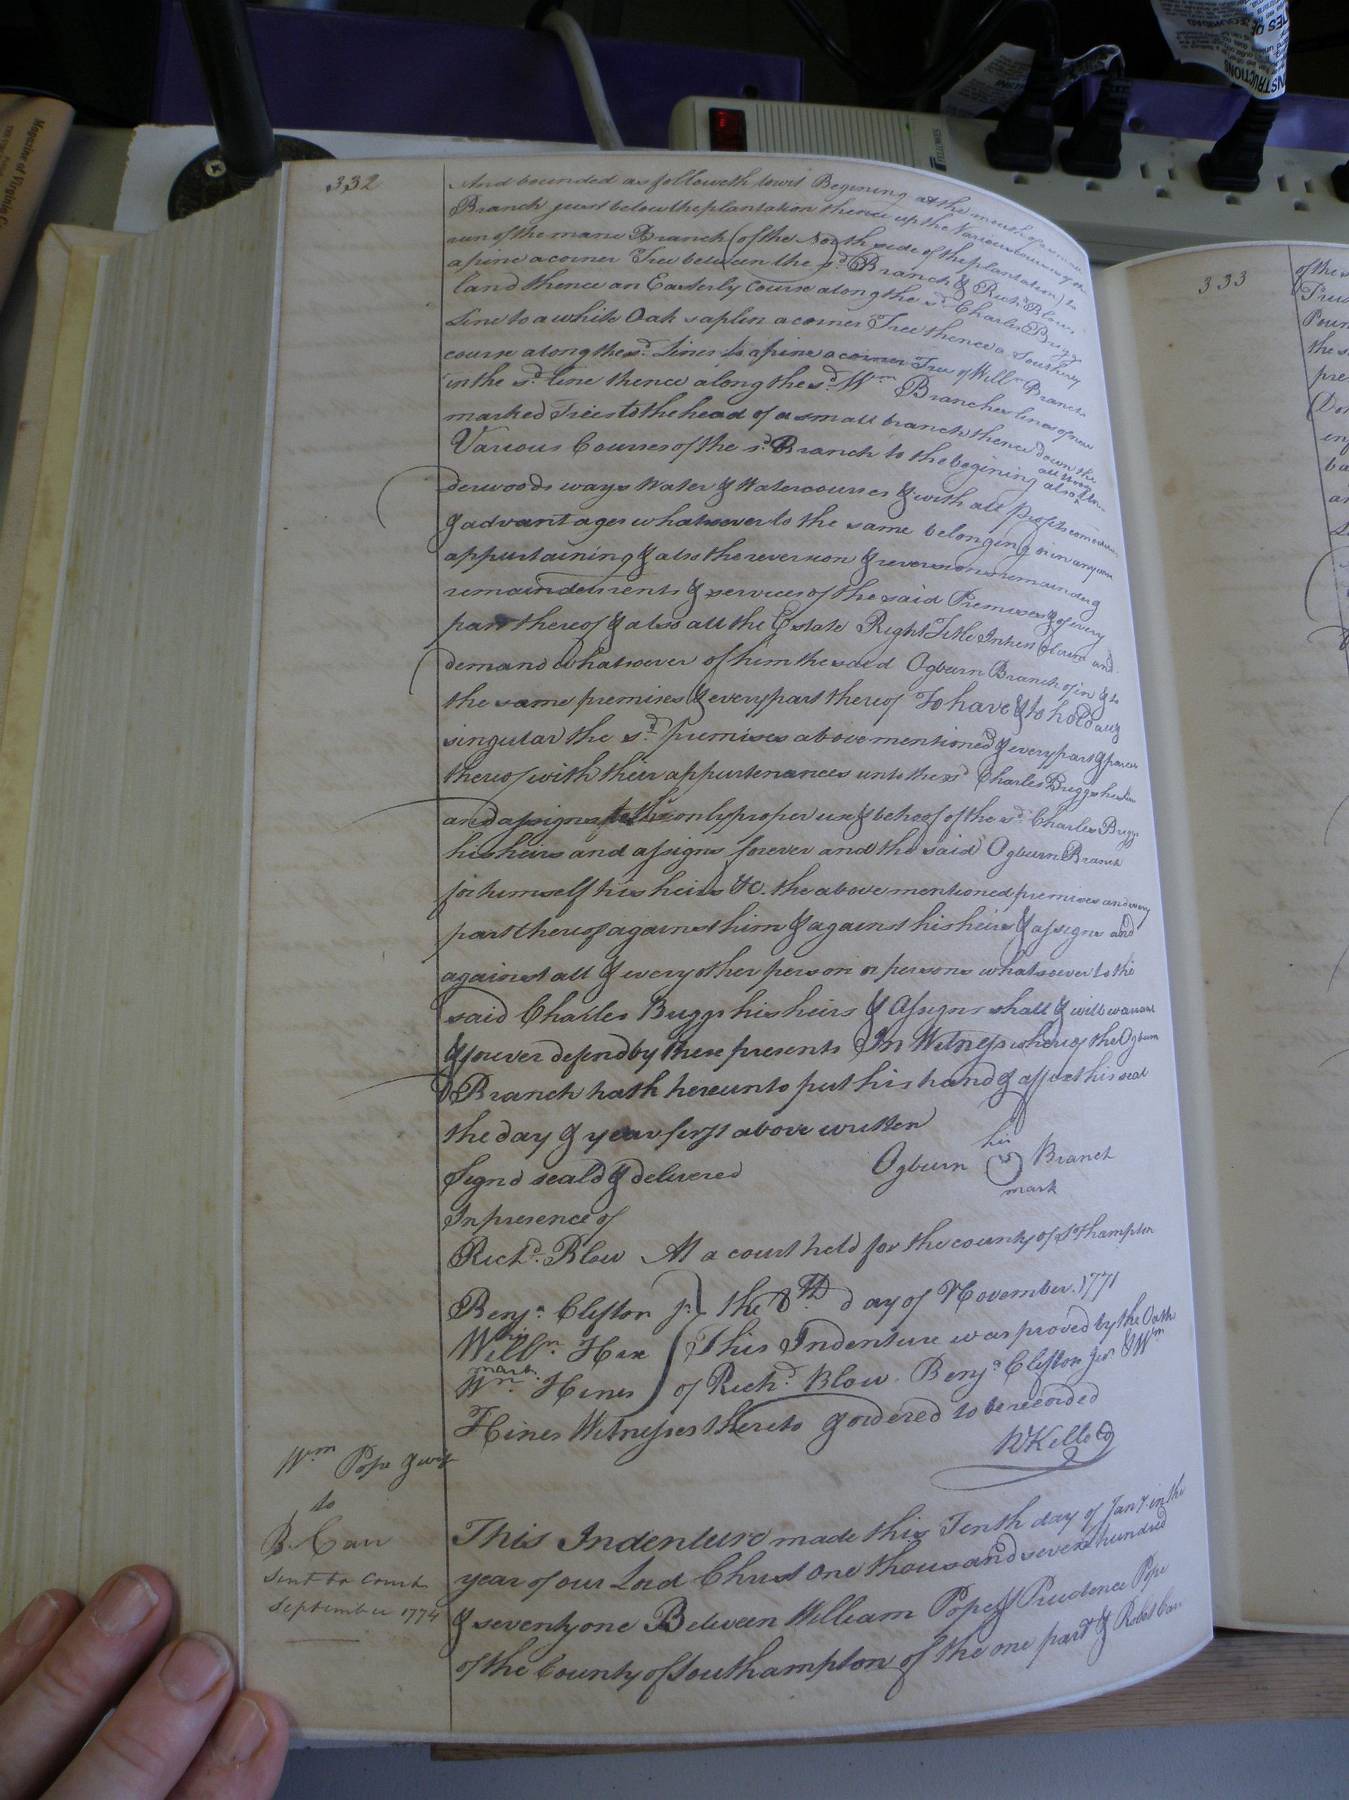 332
And bounded as followeth towit Begining at the mouth of
Branch just below the plantation thence up the Various courses of the
run of the mane Branch (of the North side of the plantation) to
a pine a corner Tree between the sd. Branch & Richd. Blows
land thence an Easterly Course along the sd. Charles Buggs
Line to a white Oak saplin a corner Tree thence a Southerly
course along the sd. Lines to a pine a corner Tree of Willm Branch
in the sd. line thence along the sd. Wm Branches lines of new
marked Trees to the head of a small branch thence down the
Various Courses of the sd. Branch to the begining also
derwoods ways Water & Watercourses & with all profits
& advantages whatsoever to the same belonging or in any
appurtaining & also the reversion & reversions remainder &
remainders rents & services of the said Premises & of every
part thereof & also all the Estate Right Title Intrest Claim and
demand whatsoever of him the said Ogburn Branch of in & to
the same premises & every part thereof To have & to hold all &
singular the sd. premises above mentioned & every part & parcel
thereof with their appurtenances unto the sd Charles Buggs his heirs
and assigns to the only proper use & behoof of the sd. Charles Buggs
his heirs and assigns forever and the said Ogburn Branch
for himself his heirs &c. the above mentioned premises and every
part thereof against him & against his heirs & assigns and
against all & every other person or persons whatsoever to the
said Charles Buggs his heirs & Assigns shall & will warrant
& forever defend by these presents In Witness whereof the Ogburn
Branch hath hereunto put his hand & affixt his seal
the day & year first above written
Signd seald & delivered Ogburn his Branch
mark
In presence of
Richd. Blow At a court held for the county of Sthampton
Benja. Clifton jr the 8th. day of November 1771
Willm. Hix This Indenture was proved by the Oath
mark
Wm. Hines of Richd. Blow. Benja. Clifton Jr & Wm
Hines Witnesses thereto & ordered to be recorded
R Kello
Wm Pope & wife
to
R. Carr
Sent to Court
September 1774
This Indenture made this Tenth day of Jany. in the
year of our Lord Christ One thousand seven hundred
& seventy one Between William Pope & Prudence Pope
of the County of Southampton of the one part & Robet Carr
333
of the
the s
pre
Magazine of Virginia
FELLOWES
INSTRUCTIONS